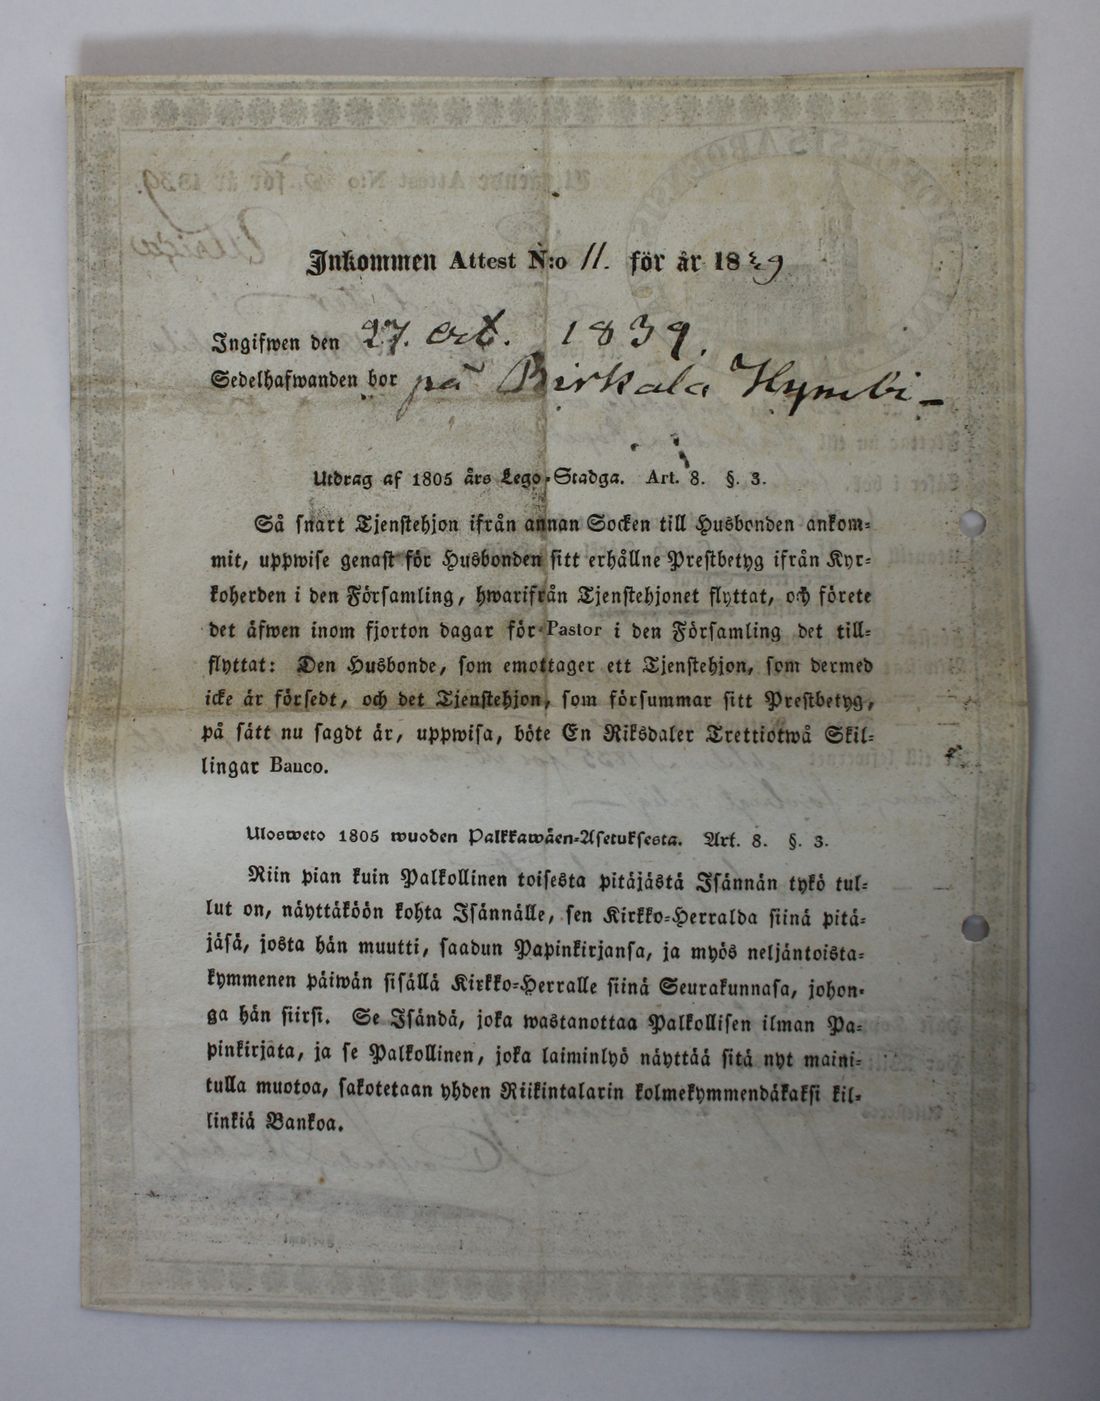 Inkommen Attest N:o 11. för år 1839
Ingifwen den 27. Oct. 1839.
Sedelhafwanden bor på Birkala Hymbi
Utdrag af 1805 års Lego-Stadga. Art. 8. §. 3.
Så snart Tjenstehjon ifrån annan Socken till Husbonden ankom-
mit, uppwise genast för Husbonden sitt erhållne Prestbetyg ifrån Kyr-
koherden i den Församling, hwarifrån Tjenstehjonet flyttat, och förete
det äfwen inom fjorton dagar för Pastor i den Församling det till-
flyttat: Den Husbonde, som emottager ett Tjenstehjon, som dermed
icke är försedt, och det Tjenstehjon, som försummar sitt Prestbetyg,
på sätt nu sagdt är, uppwisa, böte En Riksdaler Trettiotwå Skil-
lingar Banco.
Ulosweto 1805 wuoden Palkkawäen-Asetuksesta. Art. 8. §. 3.
Niin pian kuin Palkollinen toisesta pitäjästä Isännän tykö tul-
lut on, näyttäköön kohta Isännälle, sen Kirkko-Herralda siinä pitä-
jäsä, josta hän muutti, saadun Papinkirjansa, ja myös neljäntoista-
kymmenen päiwän sisällä Kirkko-Herralle siinä Seurakunnasa, johon-
ga hän siirsi. Se Isändä, joka wastanottaa Palkollisen ilman Pa-
pinkirjata, ja se Palkollinen, joka laiminlyö näyttää sitä nyt maini-
tulla muotoa, sakotetaan yhden Riikintalarin kolmekymmendäkaksi kil-
linkiä Bankoa.